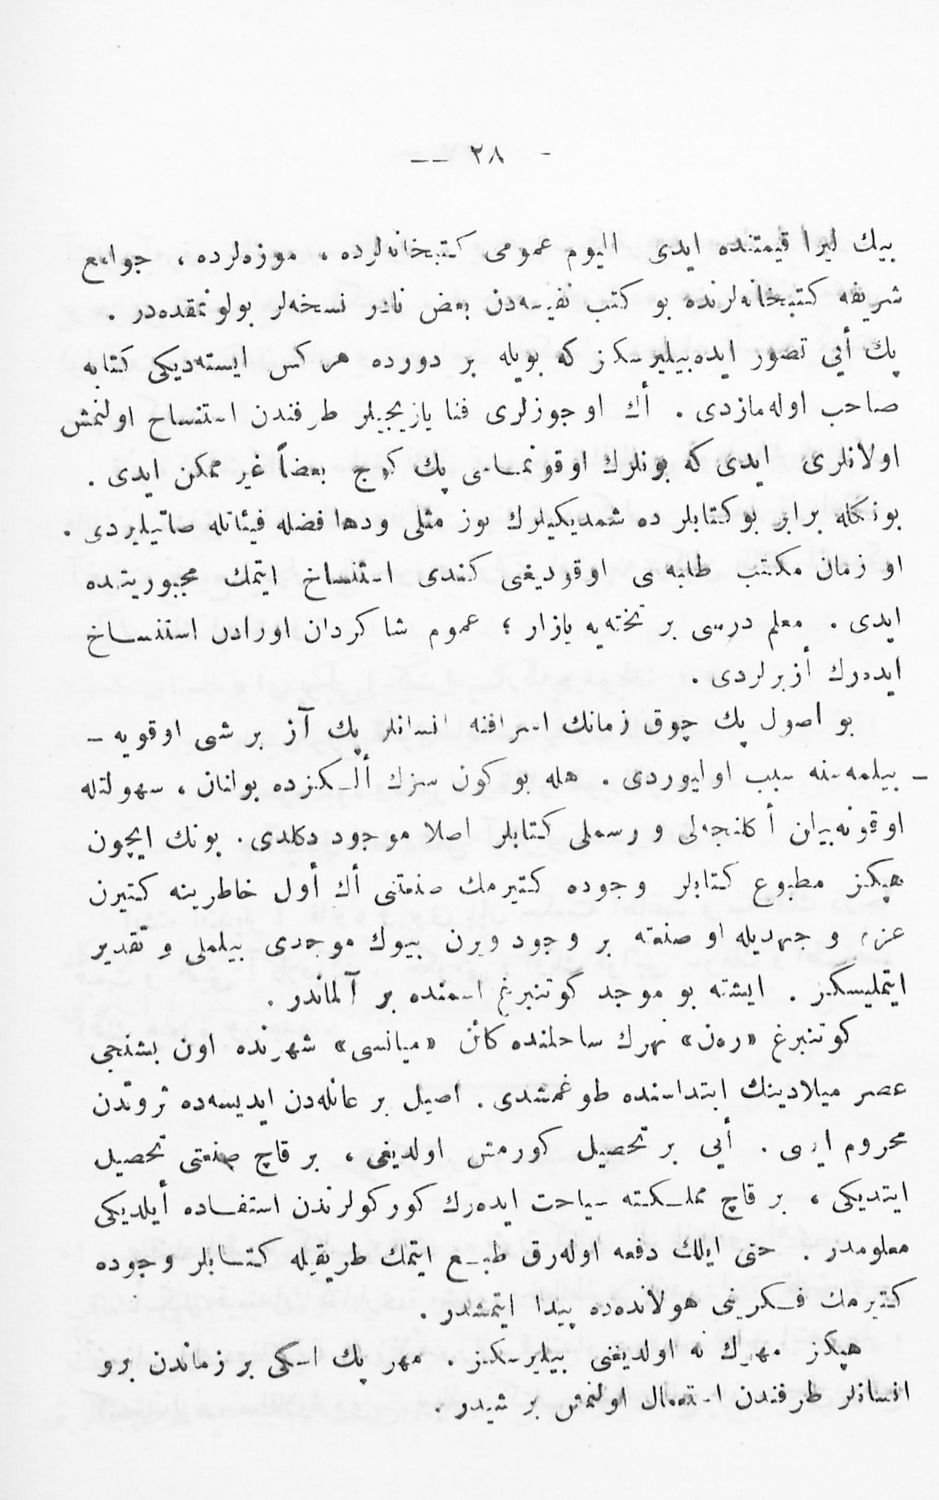 - ٢٨ --
بيك ليرا قيمتنده ايدى اليوم عمومى كتبخانه‌لرده ، موزه‌لرده ، جوامع
شريفه كتبخانه‌لرنده بو كتب نفيسه‌دن بعض نادر نسخه‌لر بولونمقده‌در .
پك أيي تصور ايده‌بيليرسكز كه بويله بر دورده هركس ايسته‌ديكى كتابه
صاحب اوله‌مازدى . أك اوجوزلرى فنا يازيجيلر طرفندن استنساخ اولنمش
اولانلرى ايدى كه بونلرك اوقونمــاسى پك كوج بعضاً غير ممكن ايدى .
بونكله برابر بوكتابلر ده شمديكيلرك يوز مثلى ودها فضله فيئاتله صاتيليردى .
او زمان مكتب طلبه‌سى اوقوديغى كندى استنساخ ايتمك مجبوريتنده
ايدى . معلم درسى بر تخته‌يه يازار ؛ عموم شاكردان اورادن استنســاخ
ايده‌رك أزبرلردى .
بو اصول پك چوق زمانك اسرافنه انسانلر پك آز بر شى اوقويه –
– بيلمه‌سنه سبب اوليوردى . هله بوكون سزك ألـكزده بولنان ، سهولتله
اوقونه‌بيلن أكلنجه‌لى و رسملى كتابلر اصلا موجود دكلدى . بونك ايچون
هپكز مطبوع كتابلر وجوده كتيرمك صنعتنى أك أول خاطرينه كتيرن
عزم و جهديله او صنعته بر وجود ويرن بيوك موجدى بيلملى و تقدير
ايتمليسكز . ايشته بو موجد كوتنبرغ اسمنده بر آلماندر .
كوتنبرغ «رەن» نهرك ساحلنده كائن «ميانسى» شهرنده اون بشنجى
عصر ميلادينك ابتداسنده طوغمشدى . اصيل بر عائله‌دن ايديسه‌ده ثروتدن
محروم ايدى . أيي بر تحصيل كورمش اولديغى ، بر قاچ صنعتى تحصيل
ايتديكى ، بر قاچ مملـكته سياحت ايده‌رك كوركولرندن استفــاده أيلديكى
معلومدر . حتى ايلك دفعه اوله‌رق طبـع ايتمك طريقيله كتــابلر وجوده
كتيرمك فـكرينى هولانده‌ده پيدا ايتمشدر .
هپكز مهرك نه اولديغنى بيليرسكز . مهر پك اسكى بر زماندن برو
انسانلر طرفندن استعمال اولنمش بر شيدر .